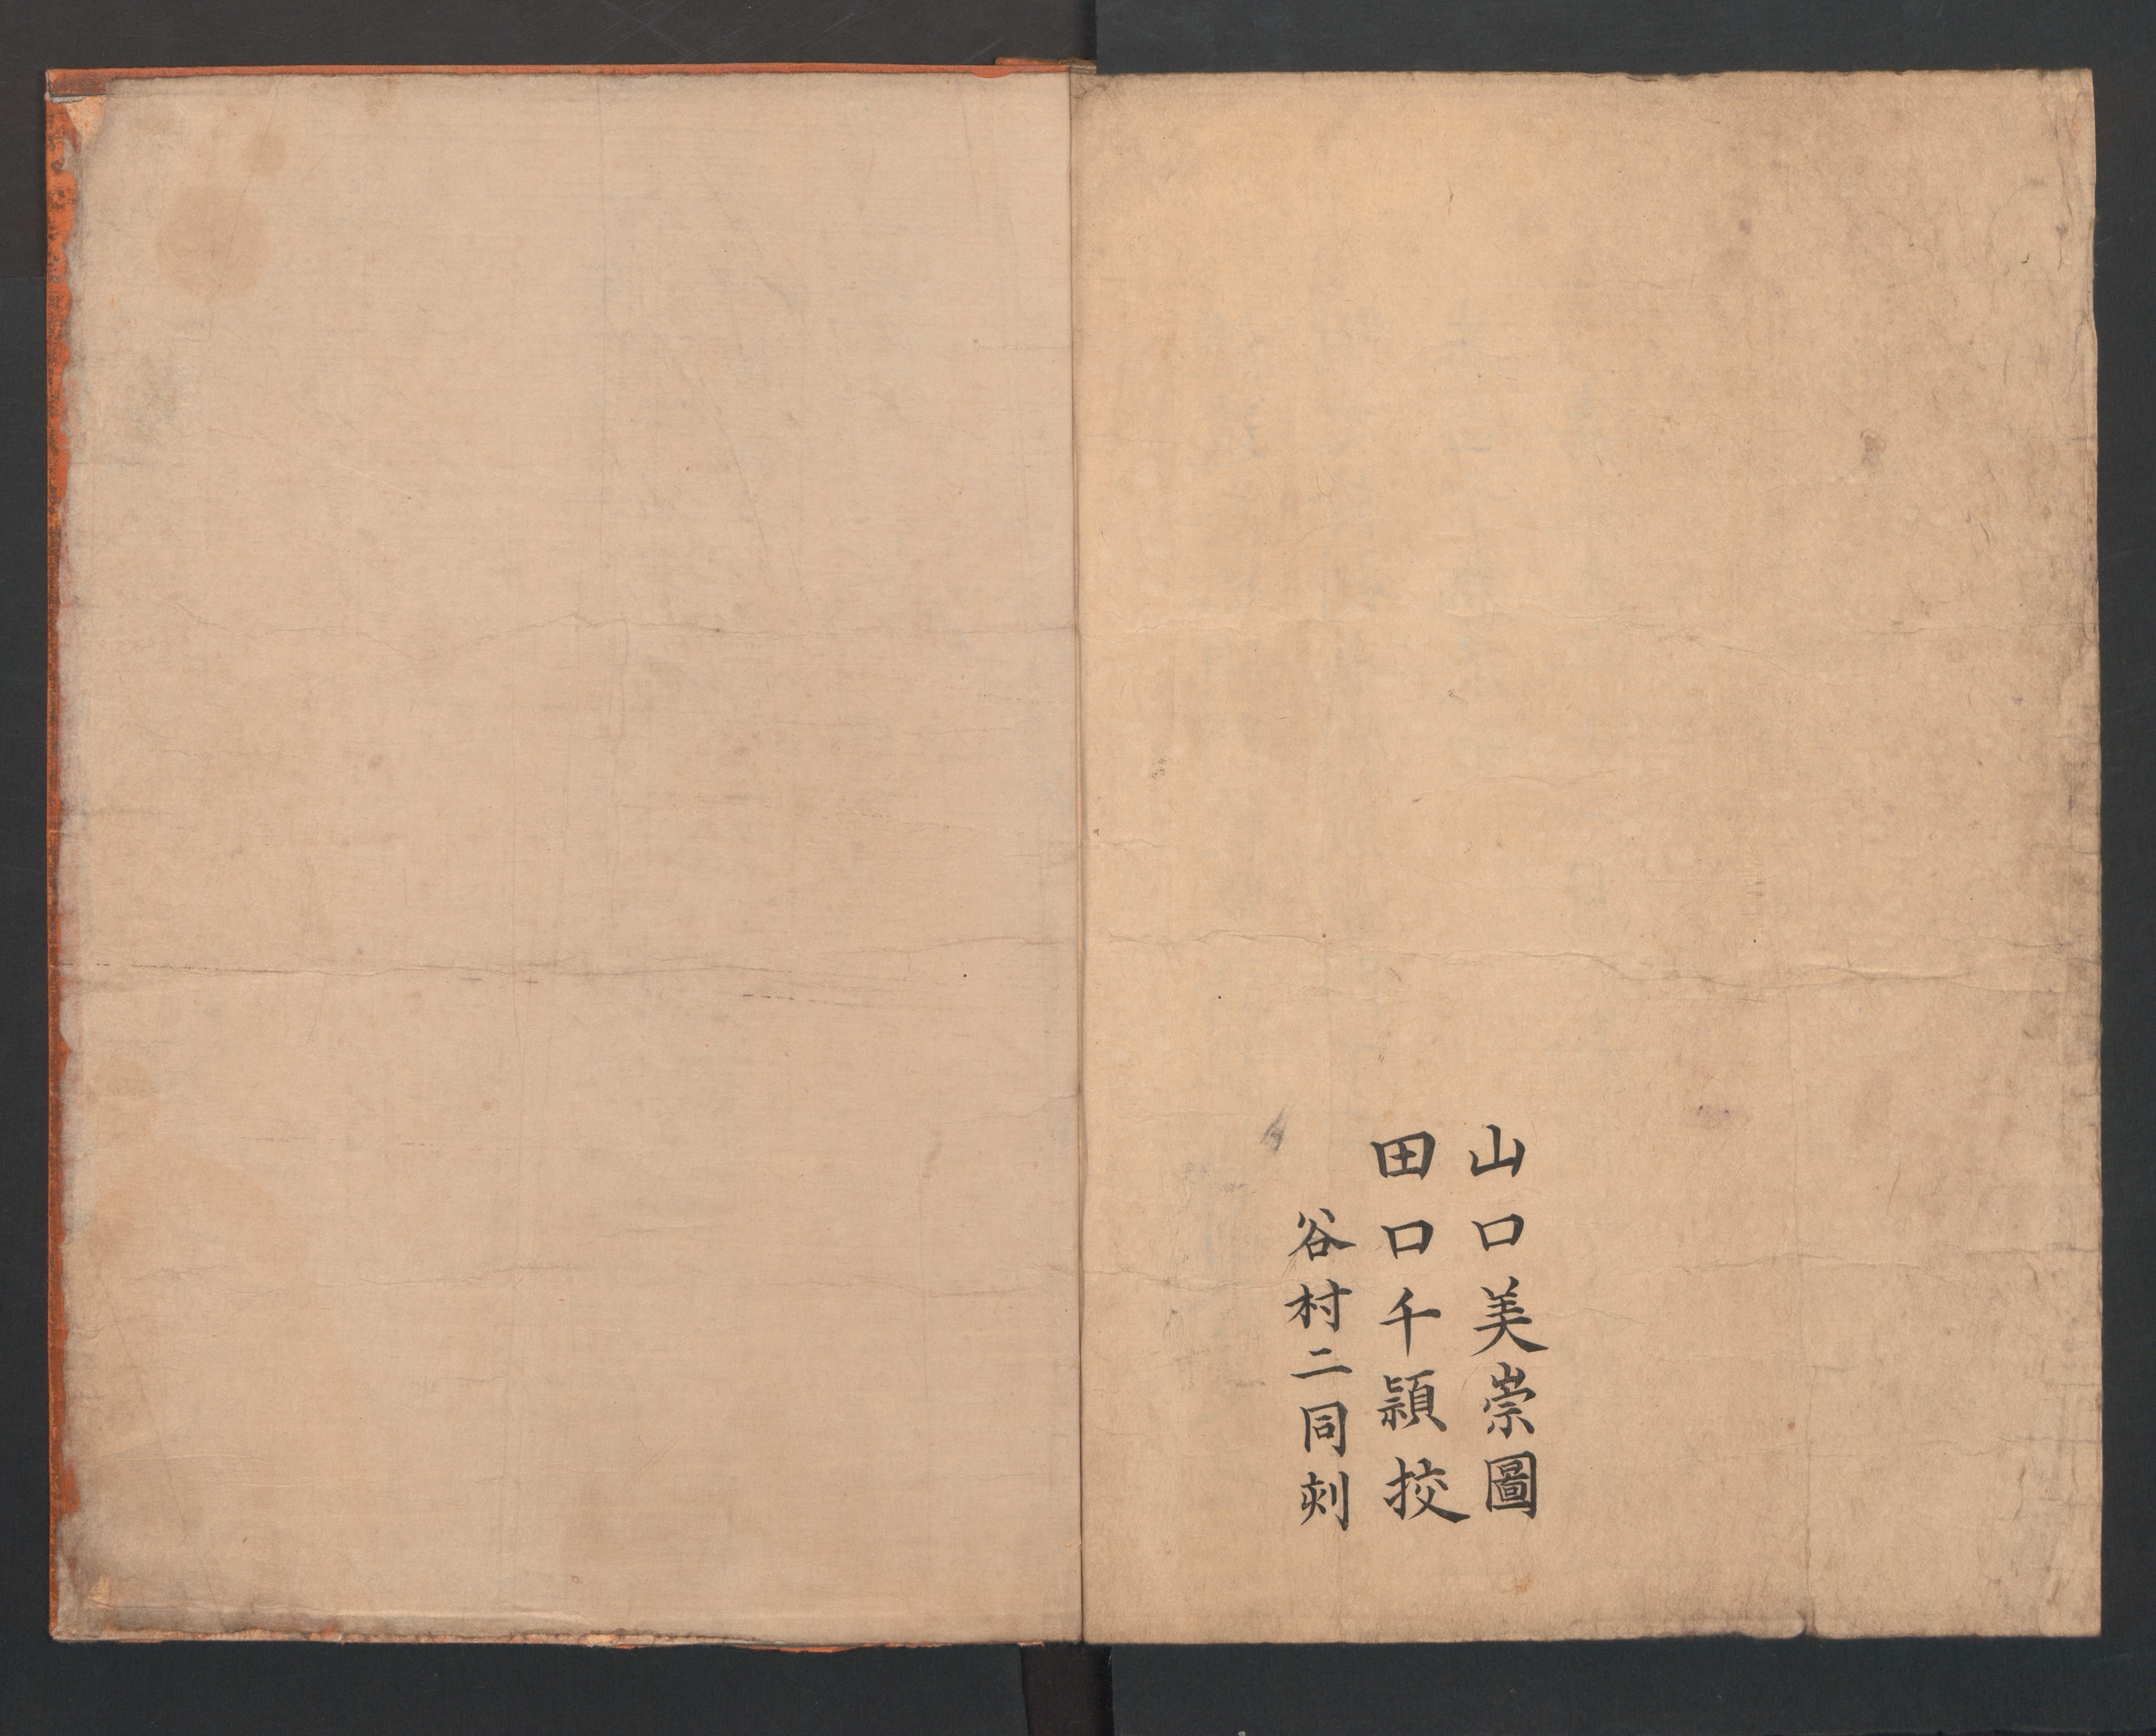 山口美崇圖
田口千頴挍
谷村二同刻